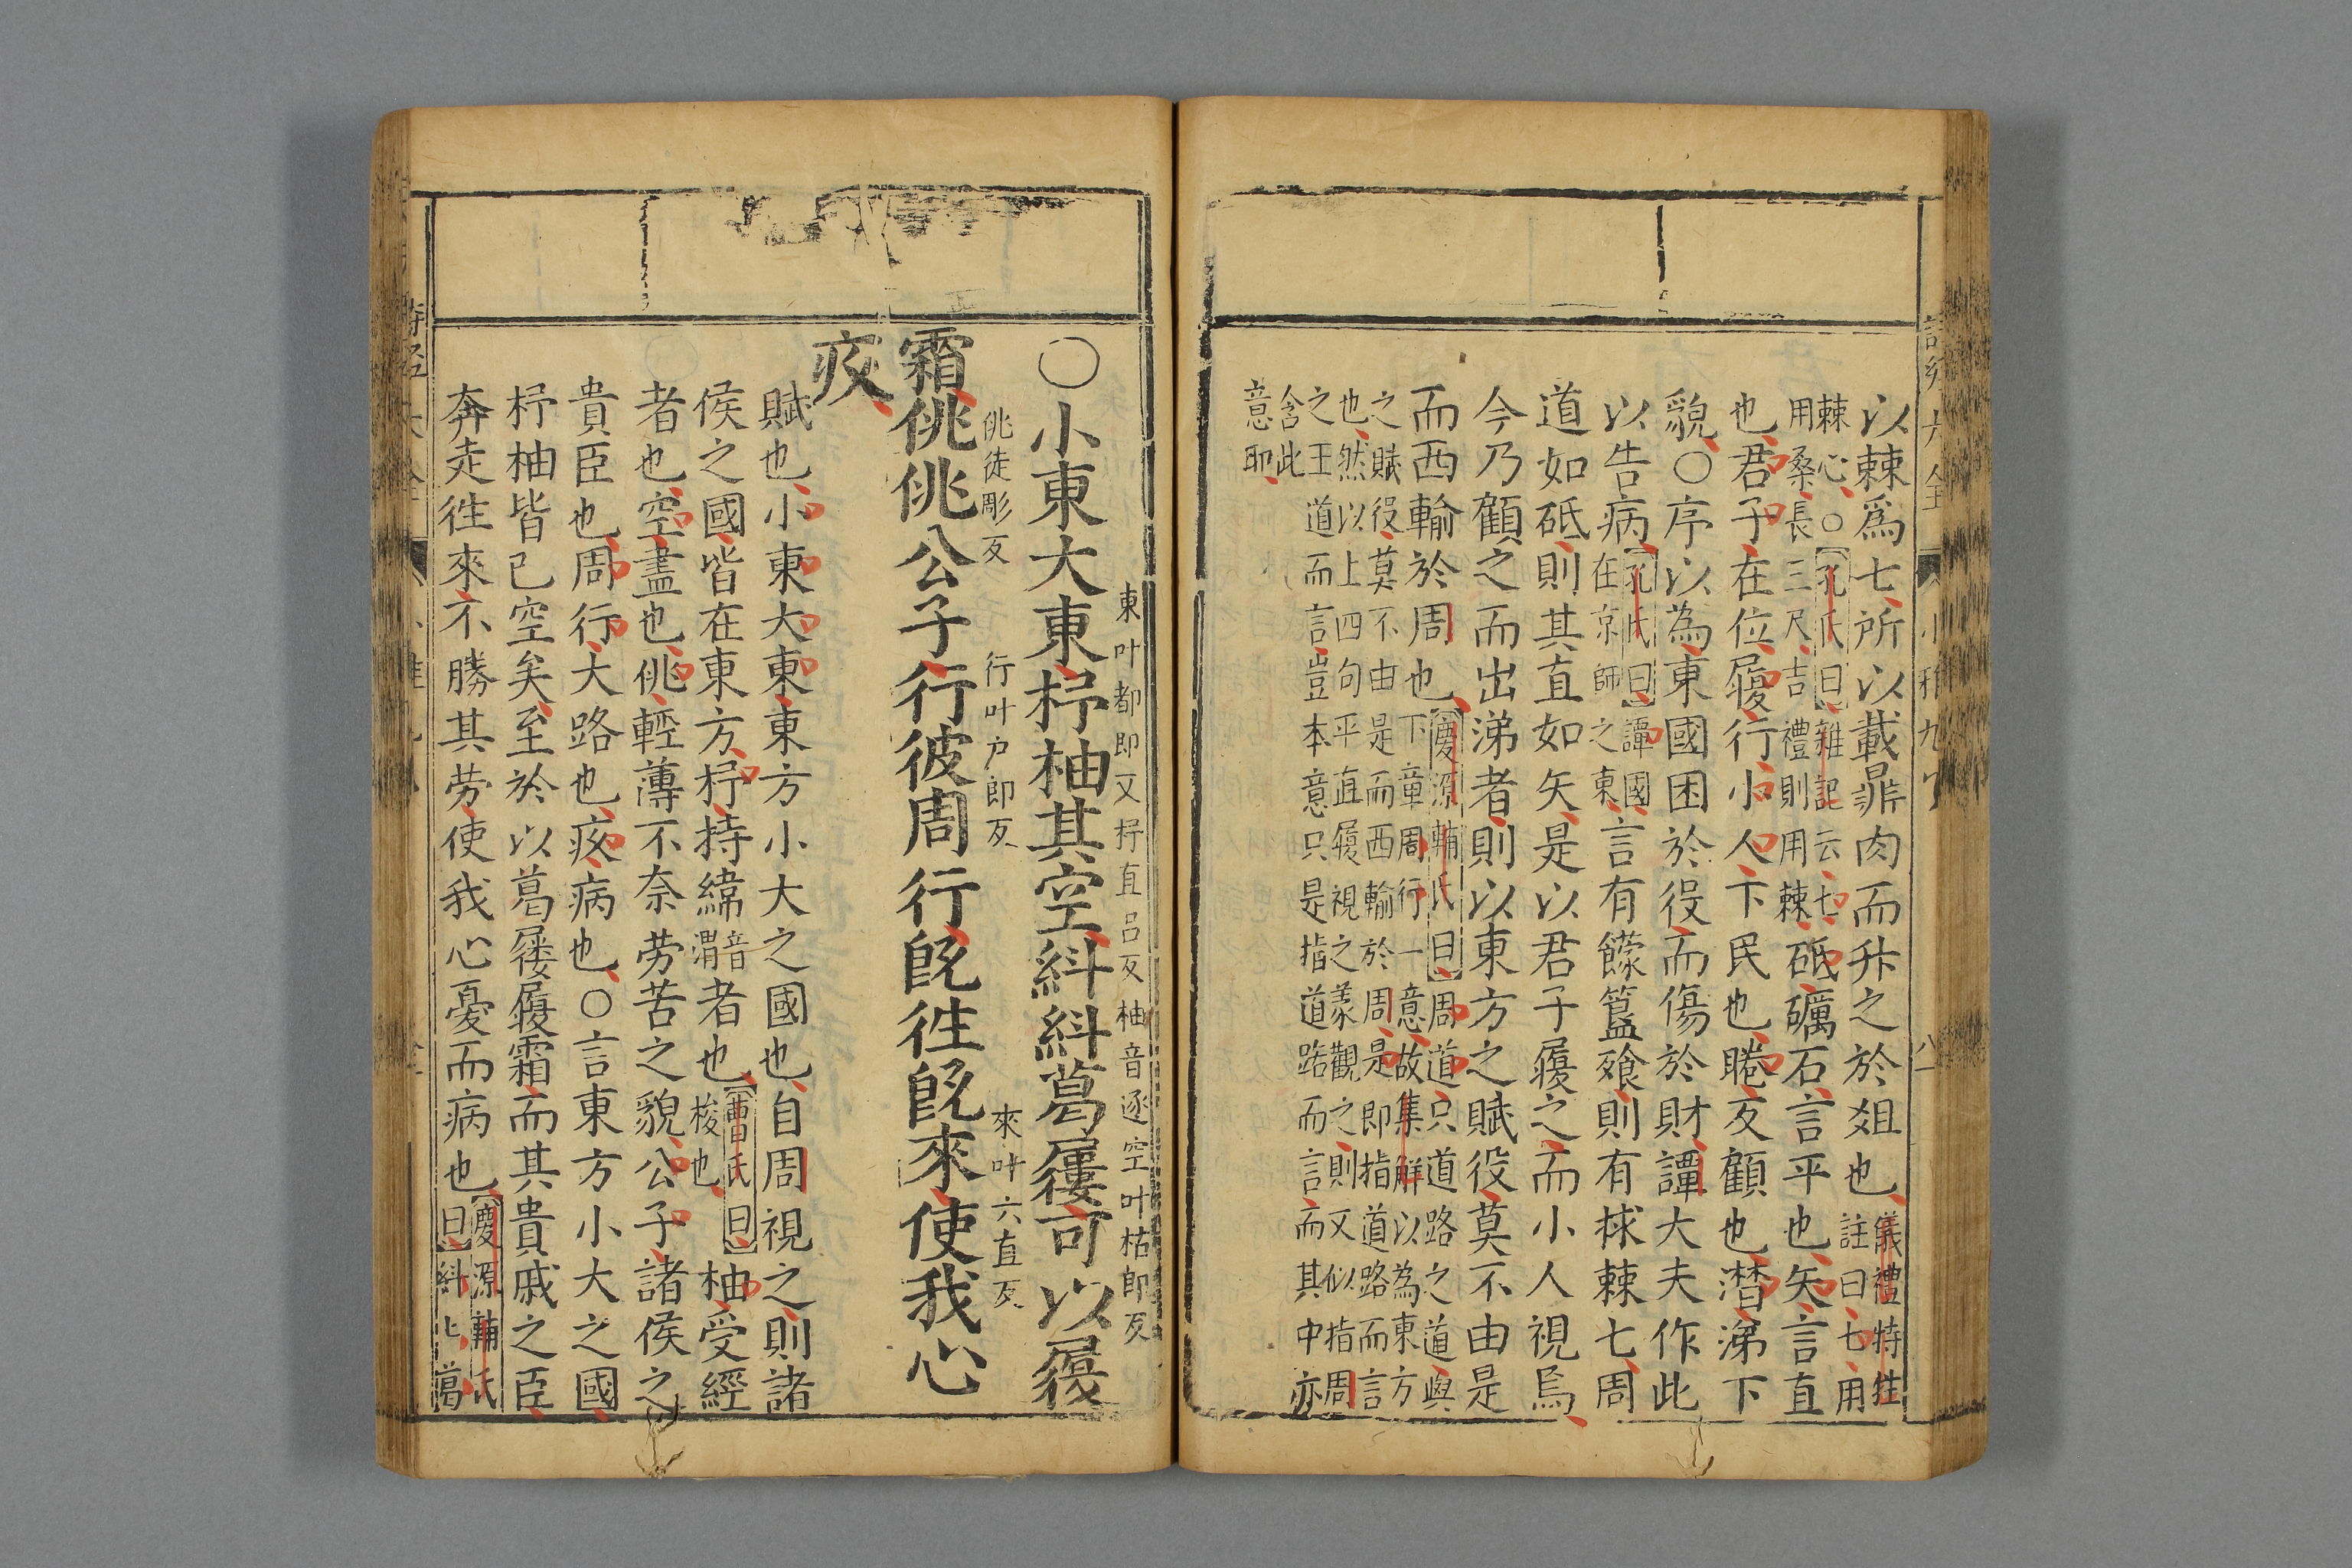 以棘爲匕所以載鼎肉而升之於俎也儀禮特牲註曰匕用
棘心○孔氏曰雜記云匕用桑長三尺吉禮則用棘砥礪石言平也矢言直
也君子在位履行小人下民也睠反顧也潸涕下
貌○序以為東國困於役而傷於財譚大夫作此
以告病孔氏曰譚國在京師之東言有饛簋飧則有捄棘匕周
道如砥則其直如矢是以君子履之而小人視焉
今乃顧之而出涕者則以東方之賦役莫不由是
而西輸於周也慶源輔氏曰周道只道路之道與下章周行一意故集解以為東方
之賦役莫不由是而西輸於周是即指道路而言
也然以上四句平直履視之㨾觀之則又似指周
之王道而言豈本意只是指道路而言而其中亦
含此
意耶
○小東大東杼柚其空糾糾葛屨可以履
東叶都郎又杼直呂反柚音逐空叶枯郎反
霜佻佻公子行彼周行既往既來使我心
佻徒彫反行叶户郎反來叶六直反
疚
賦也小東大東東方小大之國也自周視之則諸
侯之國皆在東方杼持緯音渭者也曹氏曰梭也柚受經
者也空盡也佻輕薄不奈劳苦之貌公子諸侯之
貴臣也周行大路也疚病也○言東方小大之國
杼柚皆已空矣至於以葛屨履霜而其貴戚之臣
奔走往來不勝其劳使我心憂而病也慶源輔氏曰糾匕葛